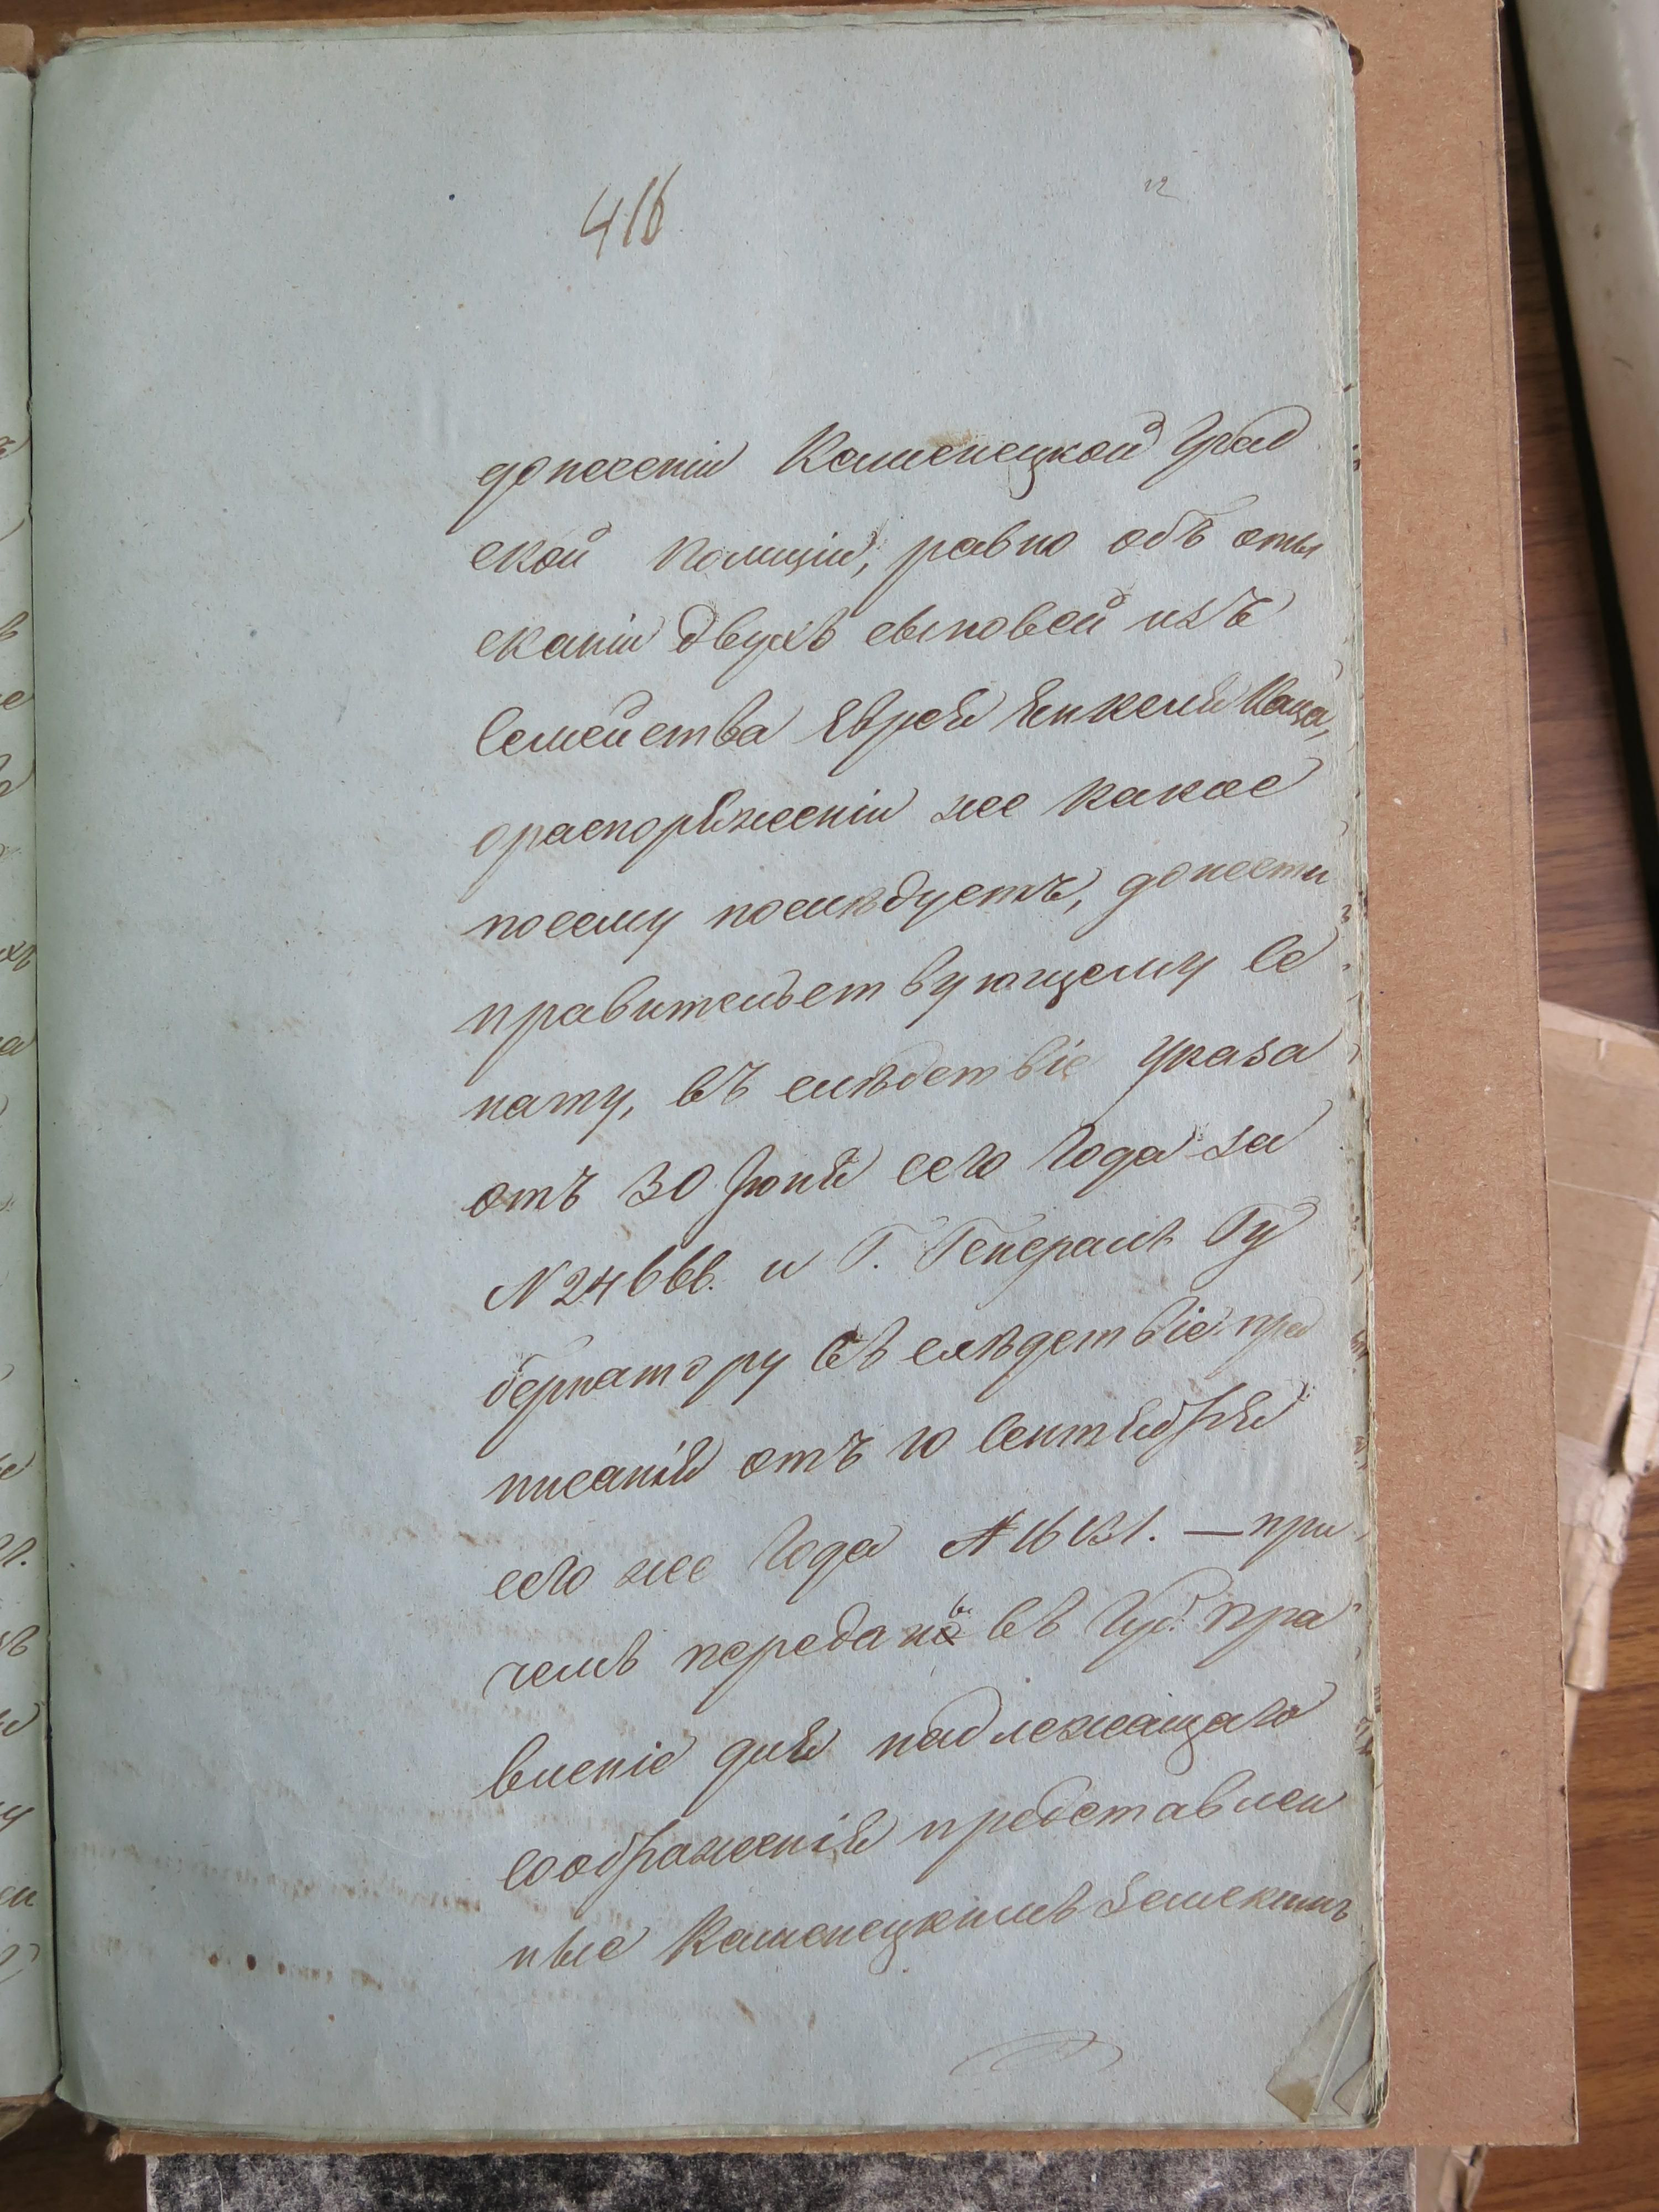 416
12
донесеніи Каменецкой град
ской полиціи, равно объ оты
сканіи двухъ сыновей изъ
семейства Еврея Янкеля Каца,
ораспоряженіи же какое
посему последуетъ, донести
правительствующему Се
нату, въ следствіе указа
отъ 30 Іюня сего года за
N 24666. и Г. Генералъ Гу
бернатору въ следствіе пред
писанія отъ 10 Сентября
сего же года N 16131. — при
чемъ переданы въ Губ. пра
вленіе для надлежащаго
соображенія представлен
ные Каменецкимъ Земскимъ